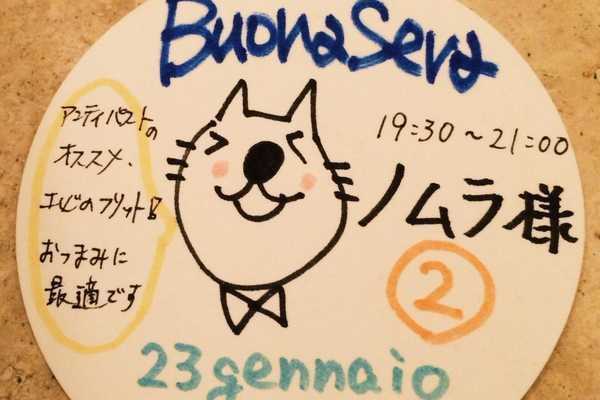 Buona Sera
アンティパストの
オススメ、
エビのフリット!!
おつまみに
最適です
19:30～21:00
ノムラ様
2
23gennaio